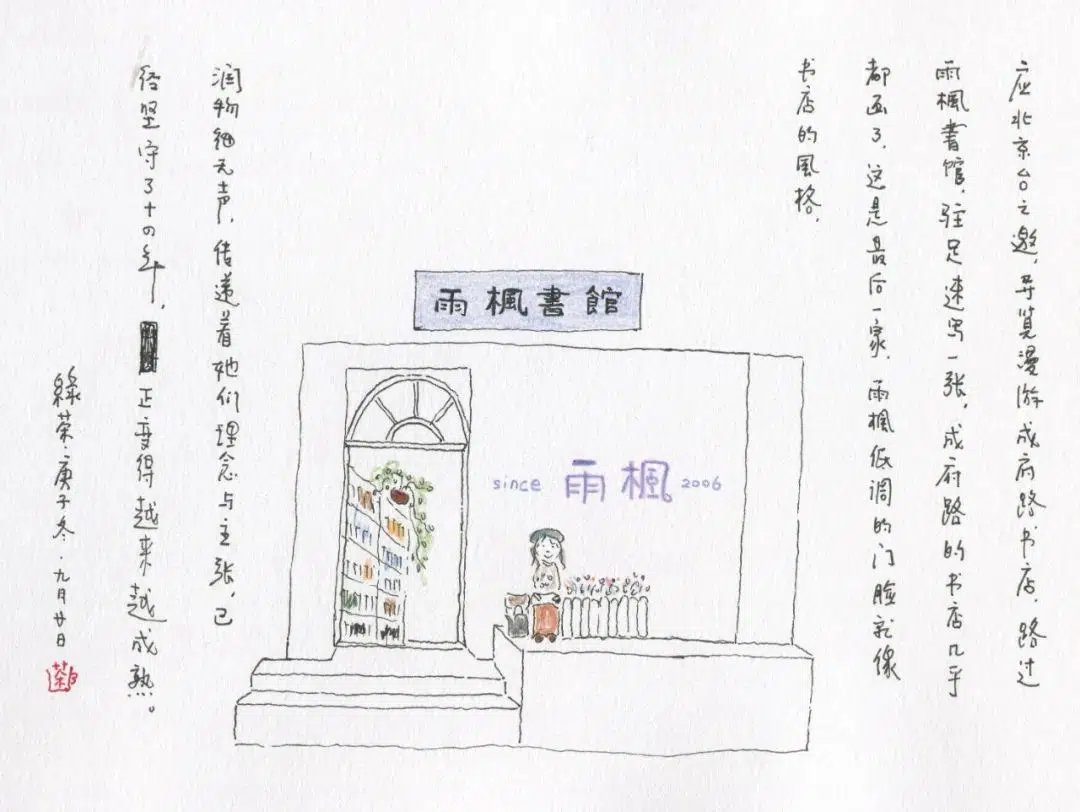 应北京台之邀，导览漫游成府路书店，路过
雨楓書馆，驻足速写一张，成府路的书店几乎
都画了，这是最后一家，雨楓低调的门脸就像
书店的風格，
雨楓書館
since 雨楓 2006
润物细无声，传递着她们理念与主张，已
经坚守了十四年，
正变得越来越成熟。
綠茶·庚子冬·九月廿日